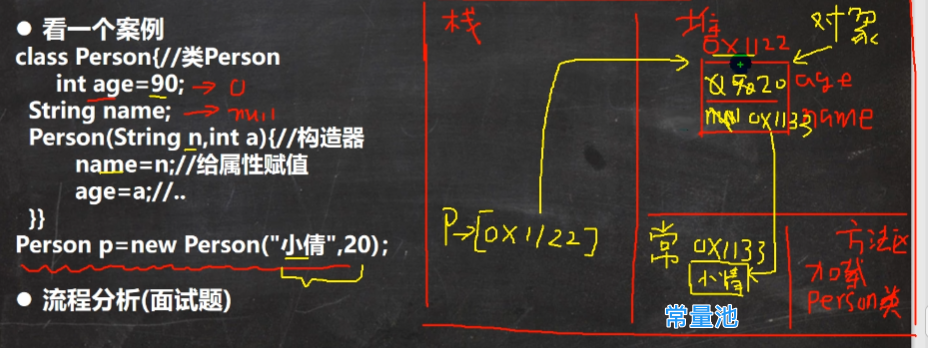 ● 看一个案例
class Person{//类Person
int age=90; → 0
String name; → null
Person(String n,int a){//构造器
name=n;//给属性赋值
age=a;//..
}}
Person p=new Person("小倩",20);
● 流程分析(面试题)
栈
P→[0X1122]
堆
对象
0X1122
0 90 20 age
null 0X1133 name
常 0X1133
小倩
常量池
方法区
加载
Person类